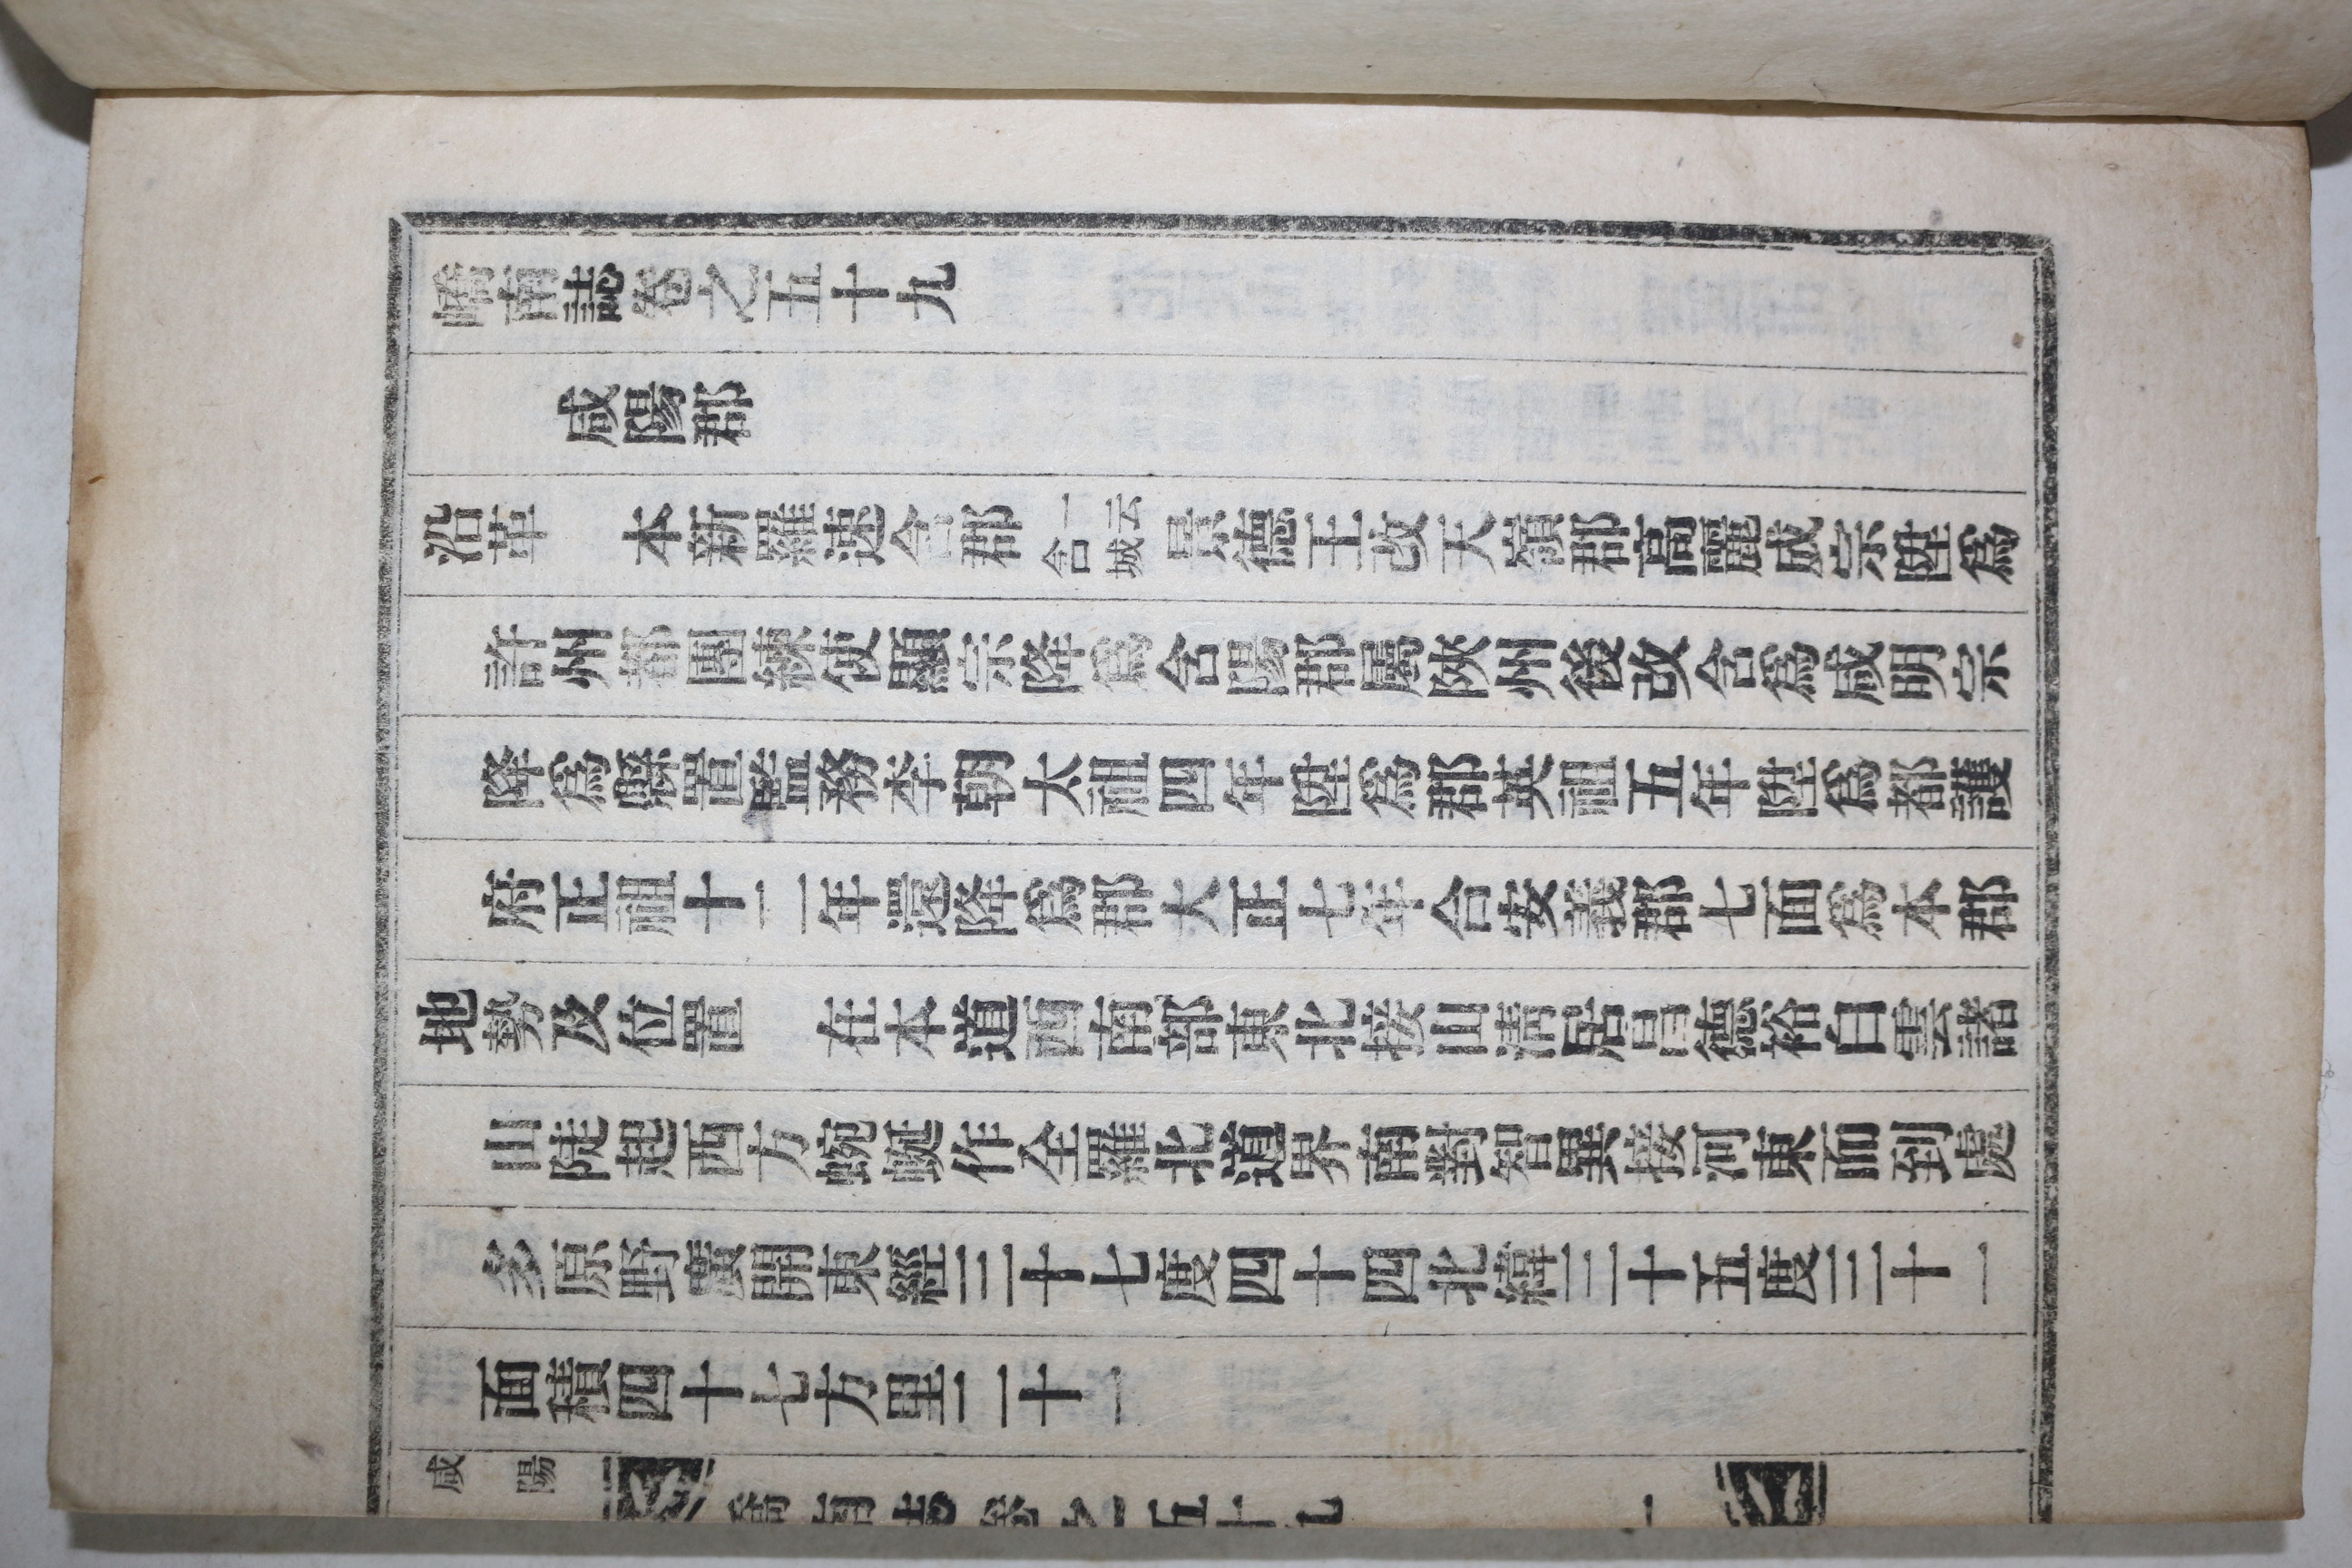 嶠南誌卷之五十九
咸陽郡
沿革 本新羅速含郡 一云含城 景德王改天嶺郡高麗成宗陞爲
許州都團練使顯宗降爲含陽郡屬陜州後改含爲咸明宗
降爲縣置監務李朝太祖四年陞爲郡英祖五年陞爲都護
府正祖十二年還降爲郡大正七年合安義郡七面爲本郡
地勢及位置 在本道西南部東北接山淸居昌德裕白雲諸
山陡起西方蜿蜒作全羅北道界南對智異接河東而到處
多原野廣開東經三十七度四十四北緯三十五度三十一
面積四十七方里二十一
咸陽
嶠南誌卷之五十九
一